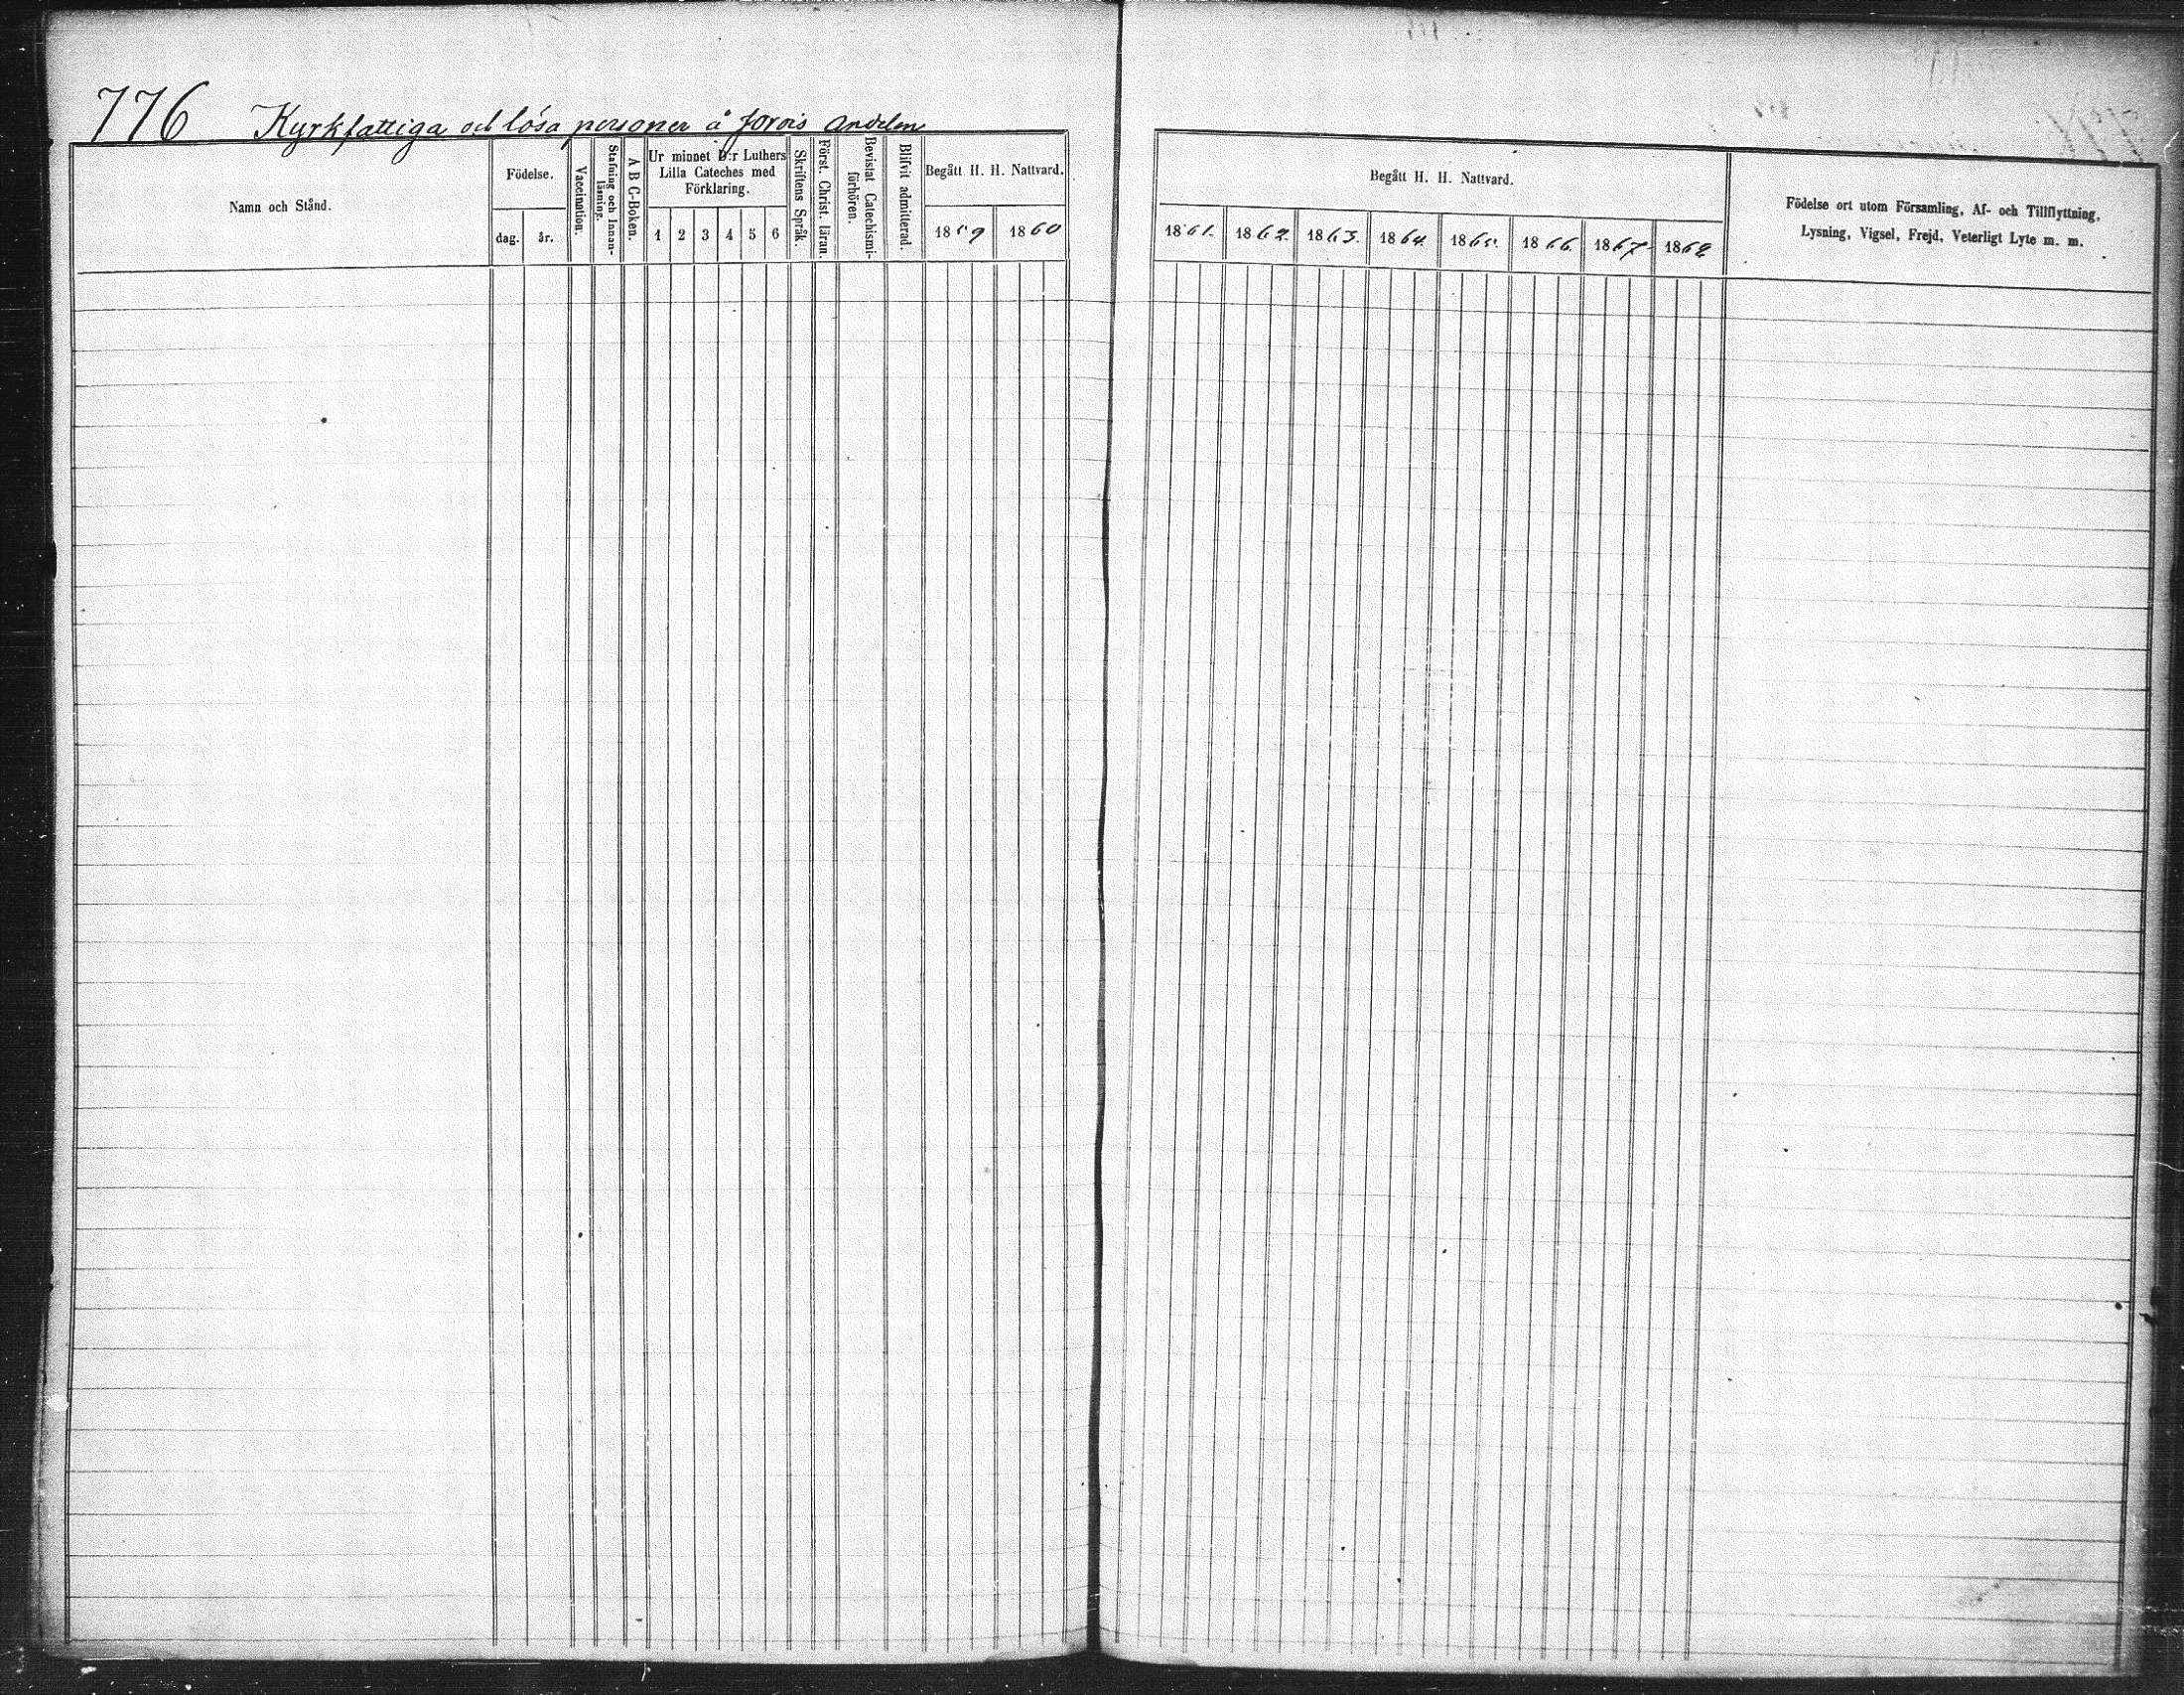 776 Kyrkfattiga och lösa personer å
Namn och Stånd.
Födelse.
dag.
år.
Vaccination.
Stafning och Innan-
läsning.
A B C-Boken.
Ur minnet D:r Luthers
Lilla Cateches med
Förklaring.
1 2 3 4 5 6
Skriftens Språk.
Först. Christ. läran.
Bevistat Catechismi-
förhören.
Blifvit admitterad.
Begått H. H. Nattvard.
1859 1860
Begått H. H. Nattvard.
1861. 1862. 1863. 1864. 1865. 1866. 1867 1868
Födelse ort utom Församling, Af- och Tillflyttning,
Lysning, Vigsel, Frejd, Veterligt Lyte m. m.